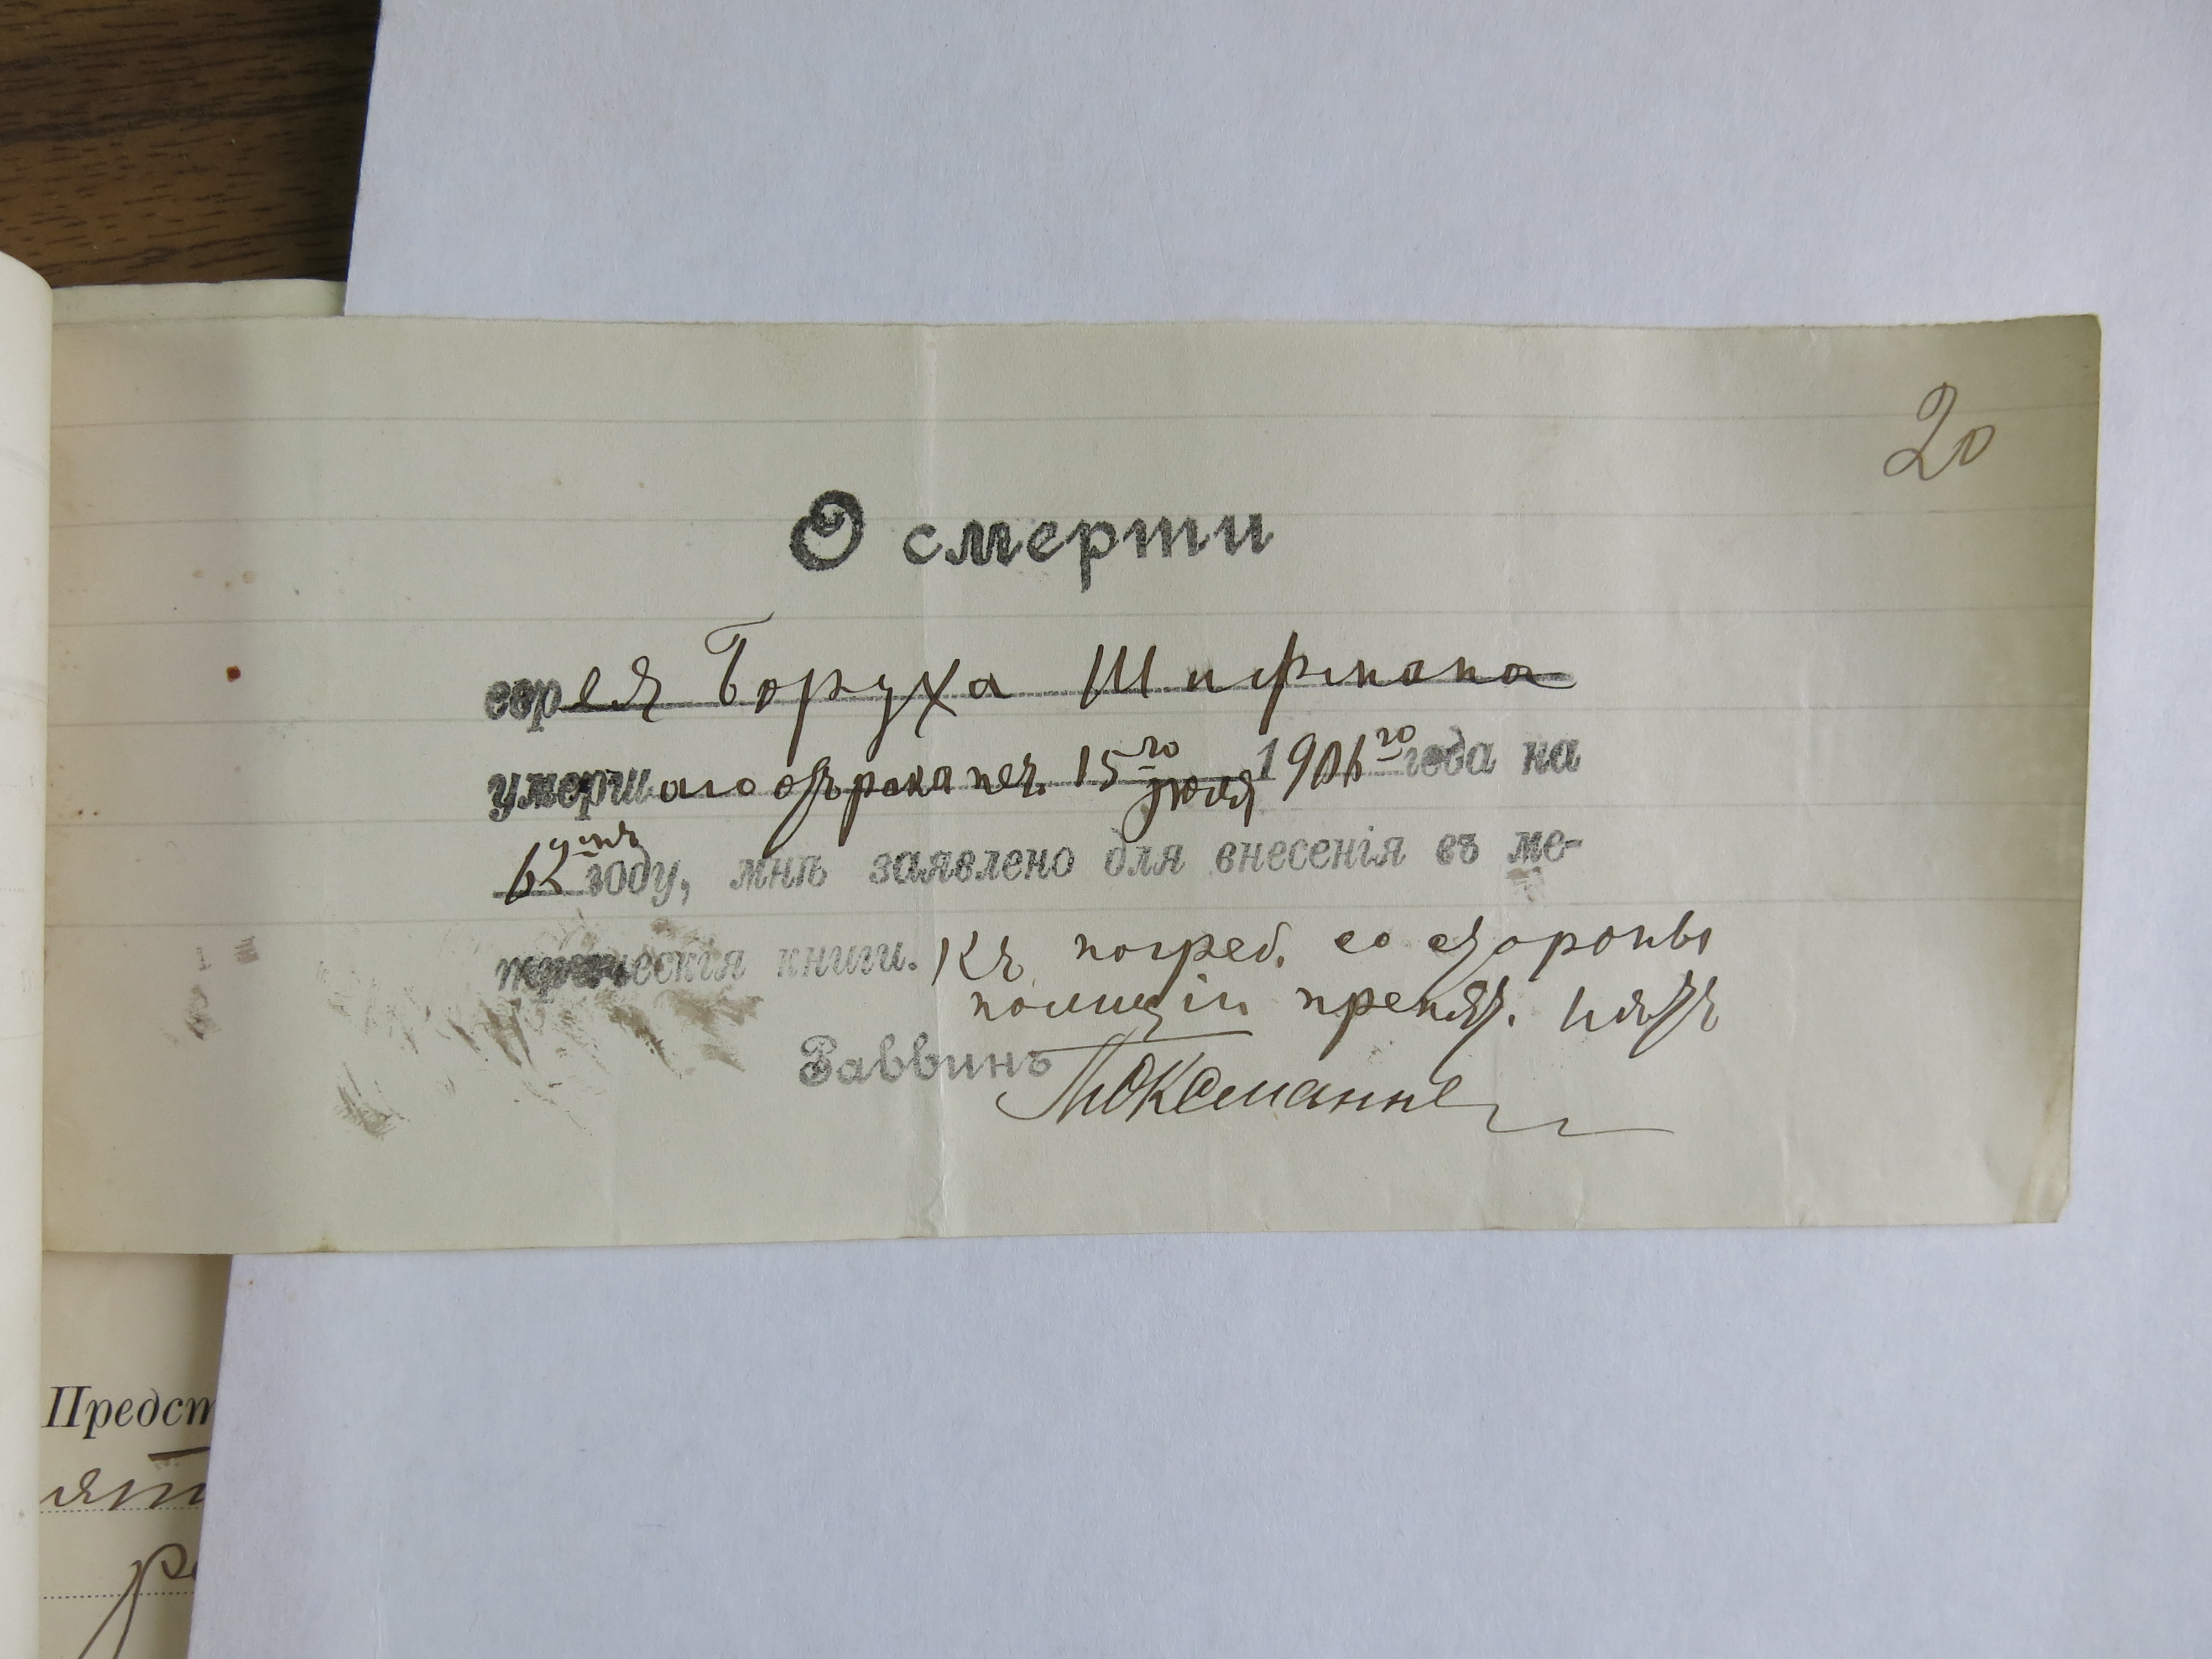 20
О смерти
еврея Боруха Шифмана
умершаго отъ рака печ. 15го Июля 1906го года на
62 году, мнѣ заявлено для внесенія въ ме-
трическія книги. Къ погреб. со стороны
полиціи препят. нѣтъ
Раввинъ
Предст
ят
ро